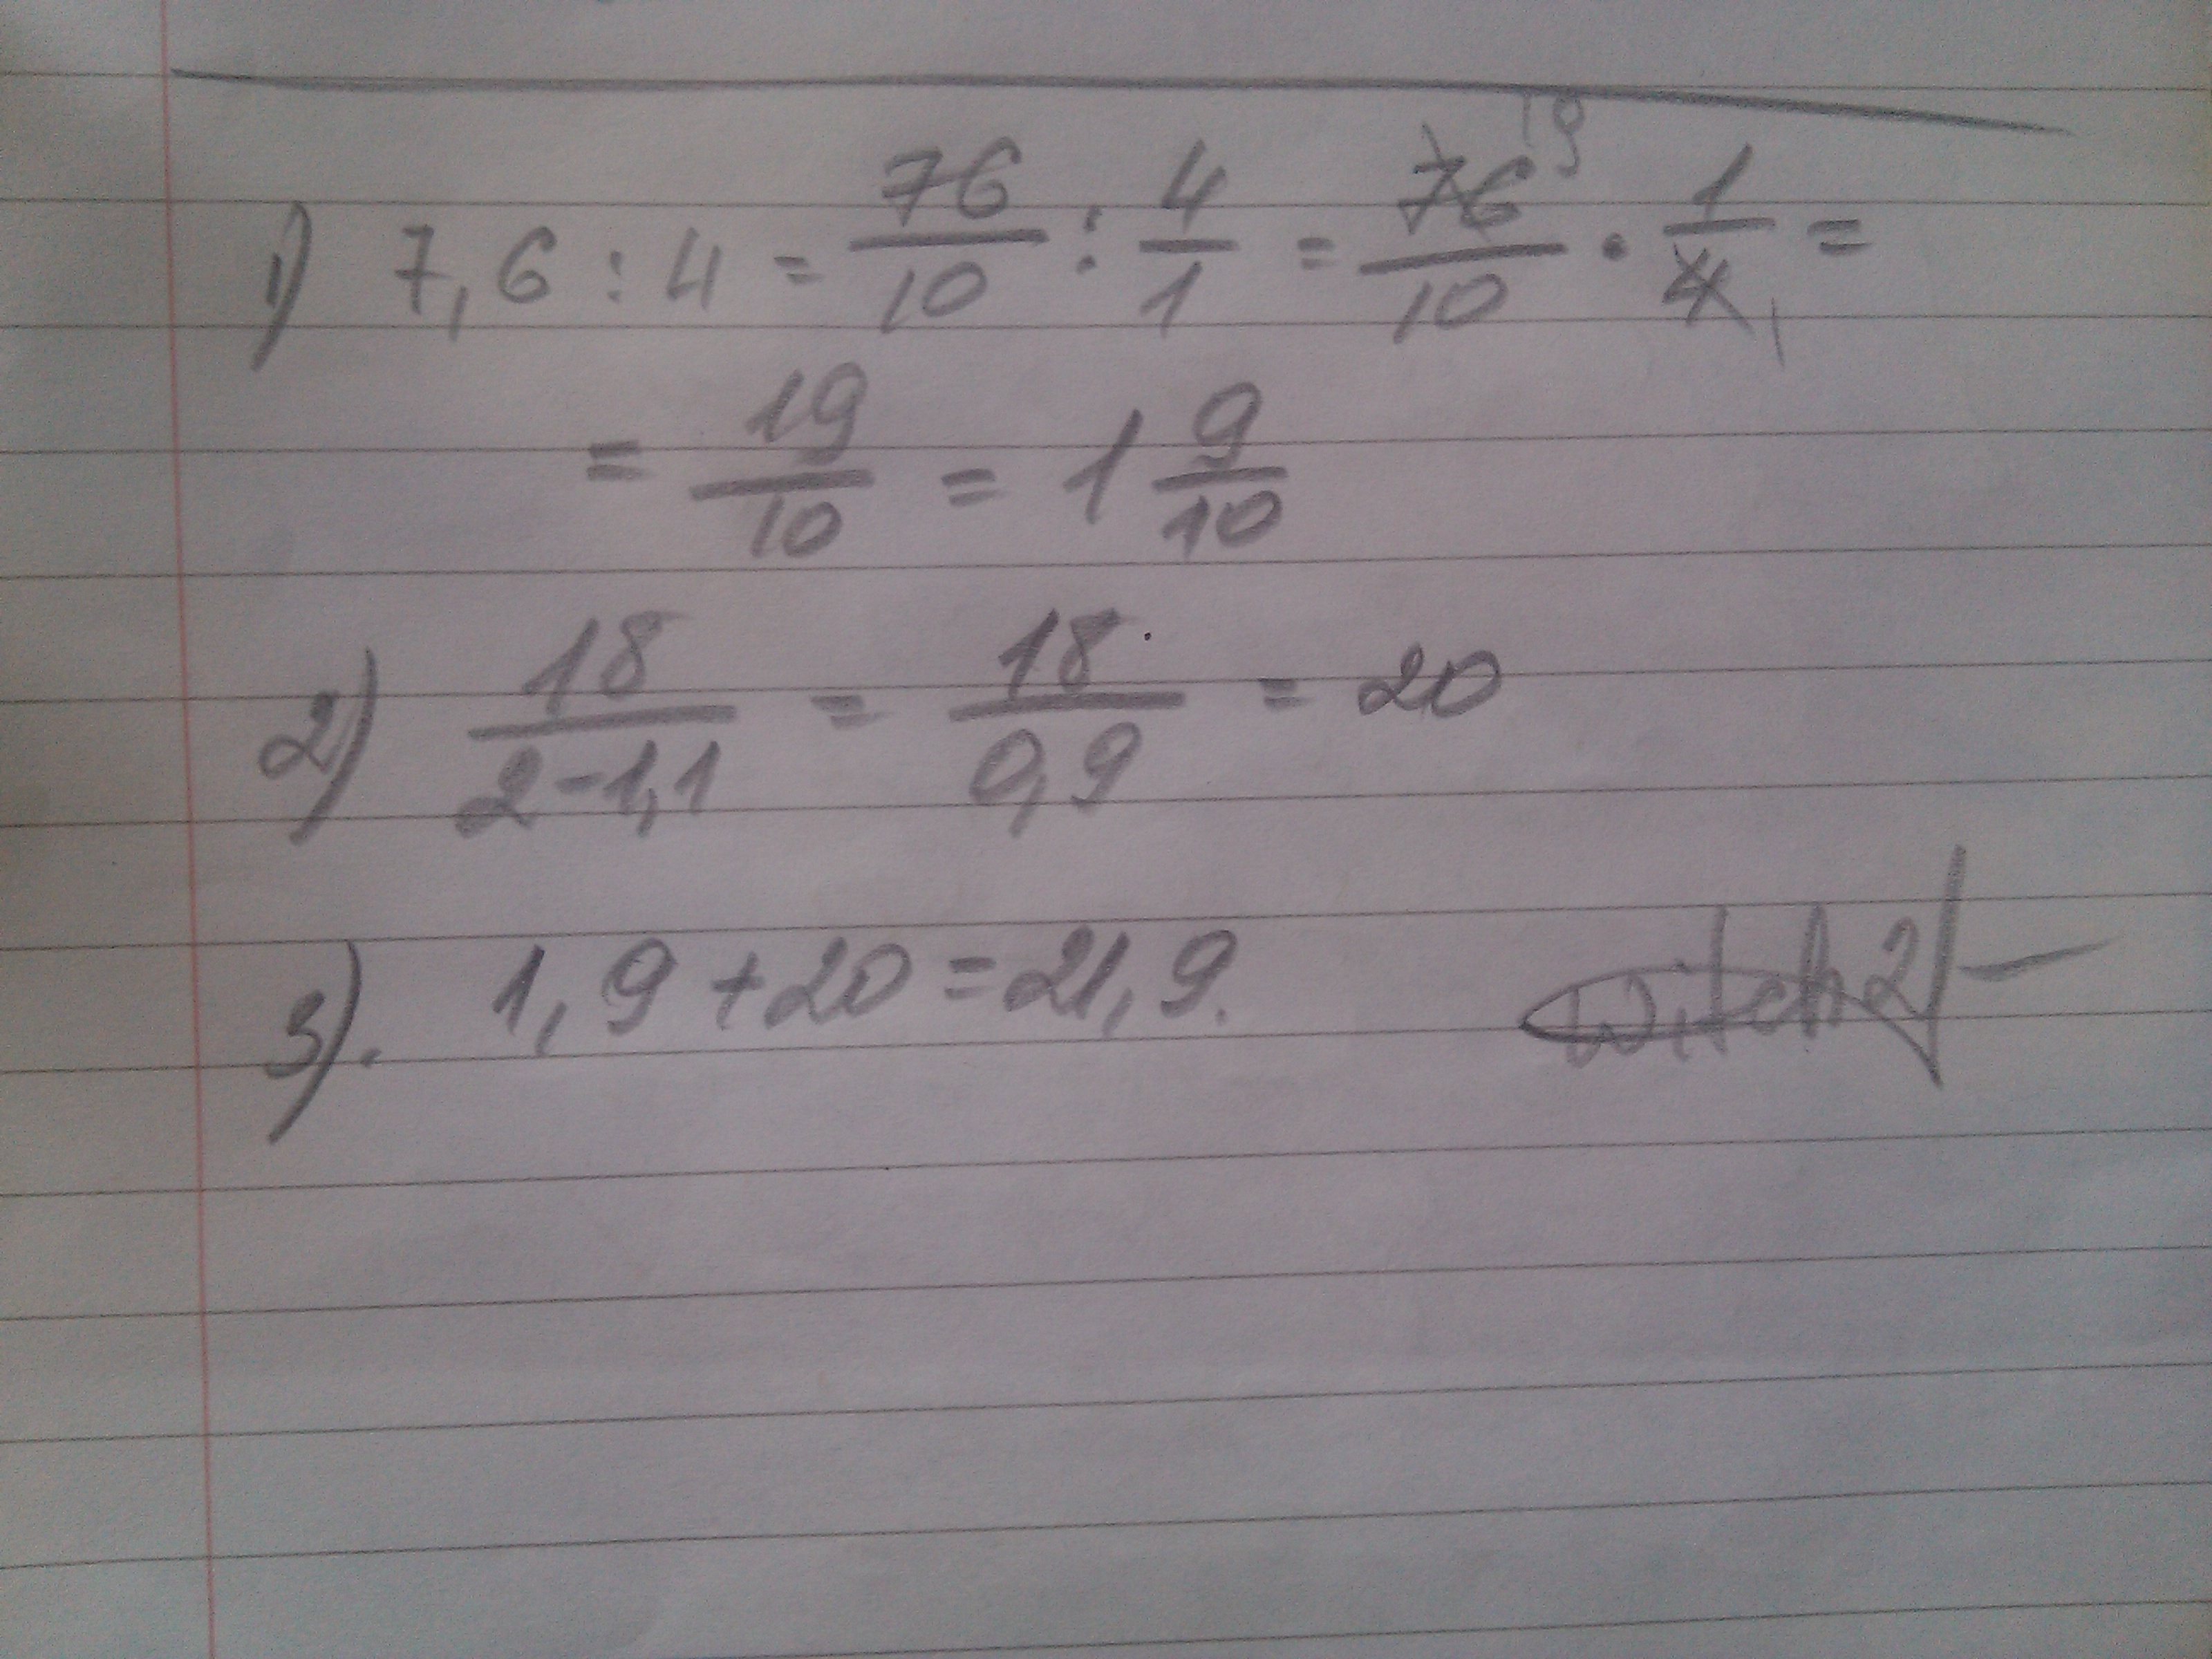 1) 7,6 : 4 = 76/10 : 4/1 = 76 19/10 · 1/4 1 =
= 19/10 = 1 9/10
2) 18/2-1,1 = 18/0,9 = 20
3). 1,9 + 20 = 21,9.
witch21